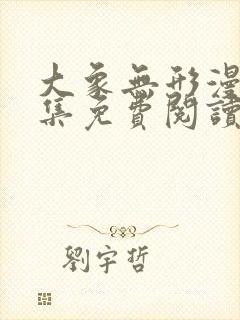 大象無形漫
集免費閱讀
劉宇哲